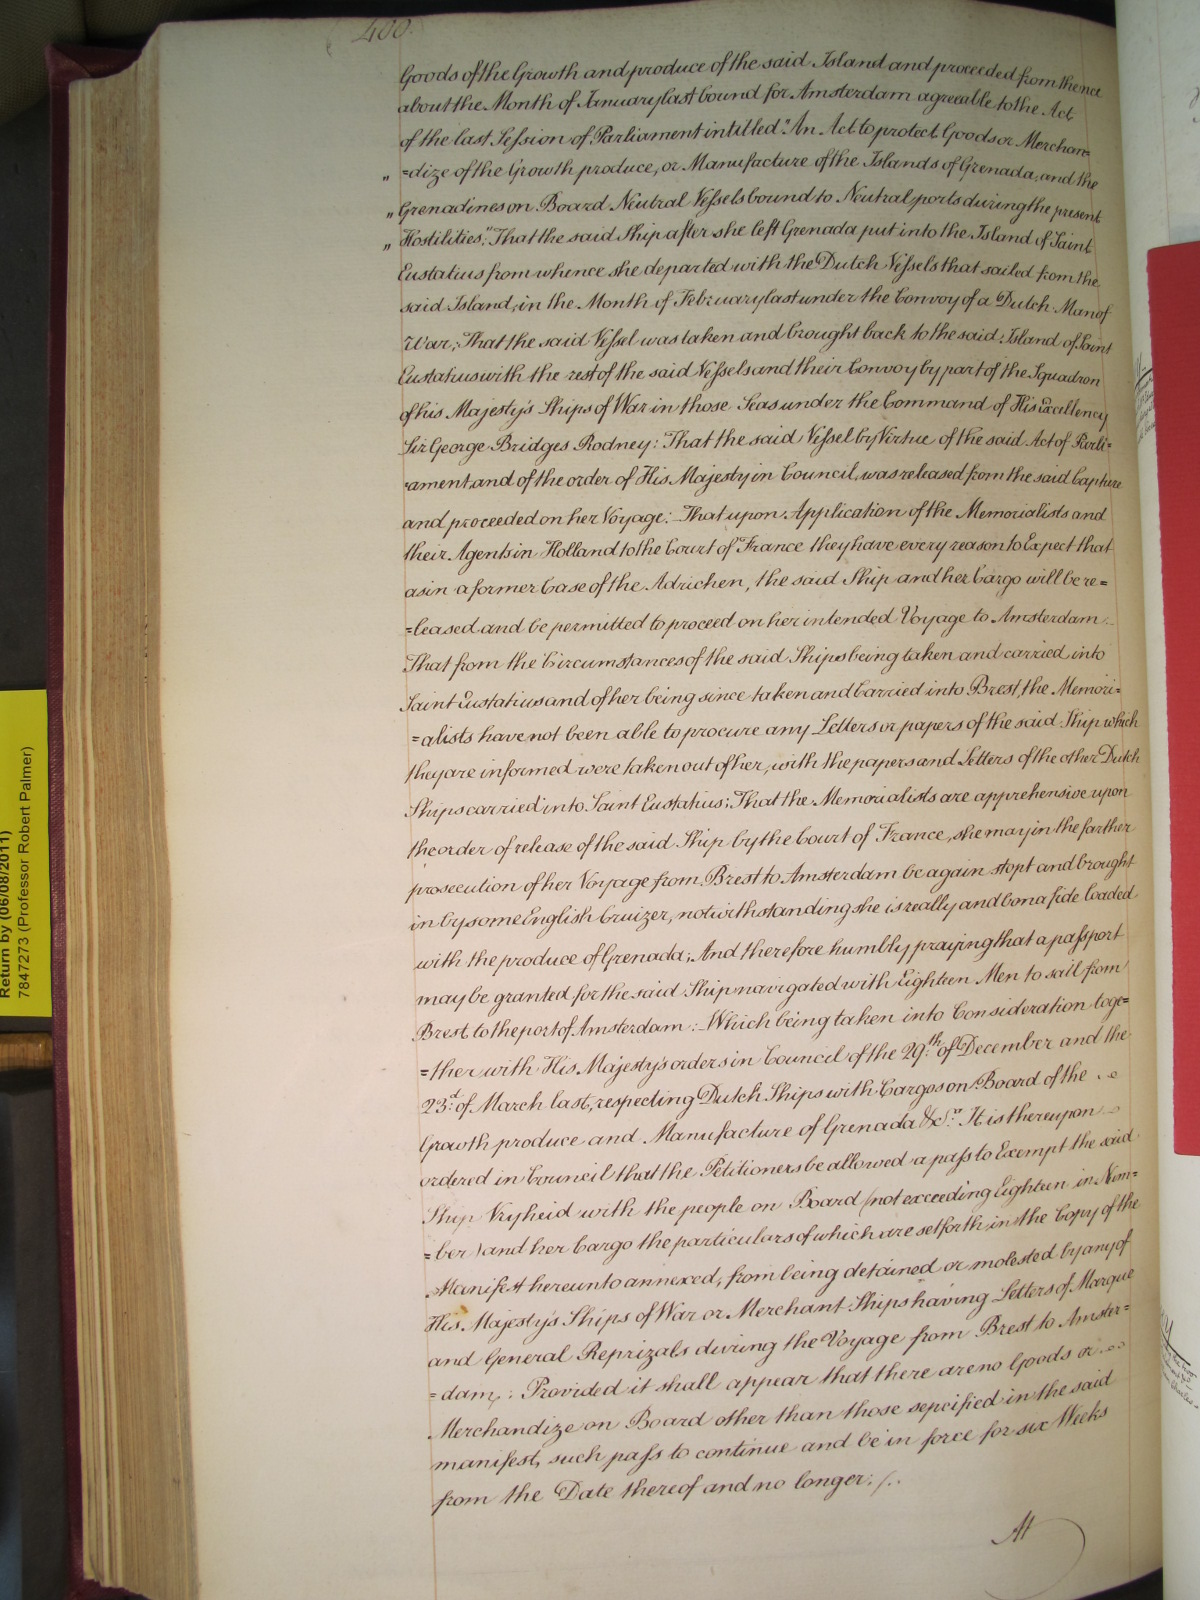 400.
Goods of the Growth and produce of the said Island and proceeded from thence
about the Month of January last bound for Amsterdam agreeable to the Act
of the last Session of Parliament intitled "An Act to protect Goods or Merchan=
" =dize of the Growth produce, or Manufacture of the Islands of Grenada, and the
" Grenadines on Board Neutral Vessels bound to Neutral ports during the present
" Hostilities": That the said Ship after she left Grenada put into the Island of Saint
Eustatius from whence she departed with the Dutch Vessels that sailed from the
said Island, in the Month of February last under the Convoy of a Dutch Man of
War; That the said Vessel was taken and brought back to the said Island of Saint
Eustatius with the rest of the said Vessels and their Convoy by part of the Squadron
of his Majesty's Ships of War in those Seas under the Command of His Excellency
Sir George Bridges Rodney: That the said Vessel by Virtue of the said Act of Parli=
=ament, and of the order of His Majesty in Council, was released from the said Capture
and proceeded on her Voyage: That upon Application of the Memorialists and
their Agents in Holland to the Court of France they have every reason to Expect that
as in a former Case of the Adrichen, the said Ship and her Cargo will be re=
=leased and be permitted to proceed on her intended Voyage to Amsterdam:
That from the Circumstances of the said Ships being taken and carried into
Saint Eustatius and of her being since taken and Carried into Brest, the Memori=
=alists have not been able to procure any Letters or papers of the said Ship which
they are informed were taken out of her, with the papers and Letters of the other Dutch
Ships carried into Saint Eustatius; That the Memorialists are apprehensive upon
the order of release of the said Ship by the Court of France, she may in the farther
prosecution of her Voyage from Brest to Amsterdam be again stopt and brought
in by some English Cruizer, notwithstanding she is really and bona fide loaded
with the produce of Grenada; And therefore humbly praying that a passport
may be granted for the said Ship navigated with Eighteen Men to sail from
Brest to the port of Amsterdam: Which being taken into Consideration toge=
=ther with His Majesty's orders in Council of the 29th. of December and the
23d. of March last, respecting Dutch Ships with Cargos on Board of the
Growth produce and Manufacture of Grenada &ca. It is thereupon
ordered in Council that the Petitioners be allowed a pass to Exempt the said
Ship Vryheid with the people on Board (not exceeding Eighteen in Num=
=ber) and her Cargo the particulars of which are set forth in the Copy of the
Manifest hereunto annexed, from being detained or molested by any of
His Majesty's Ships of War or Merchant Ships having Letters of Marque
and General Reprizals during the Voyage from Brest to Amster=
=dam: Provided it shall appear that there are no Goods or
Merchandize on Board other than those sepcified in the said
manifest, such pass to continue and be in force for six Weeks
from the Date thereof and no longer. /.
At
Return by (06/08/2011)
7847273 (Professor Robert Palmer)